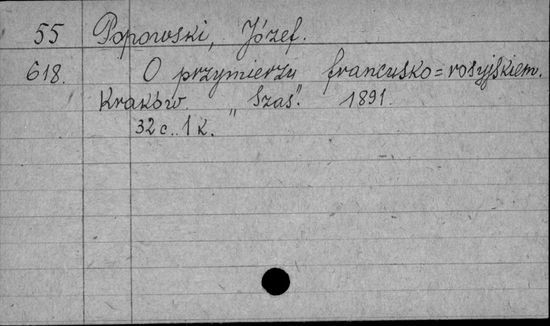 55 Popowski, Józef.
618. O przymierzu francusko=rosyjskiem.
Kraków. „Czas". 1891.
32 c. 1 k.